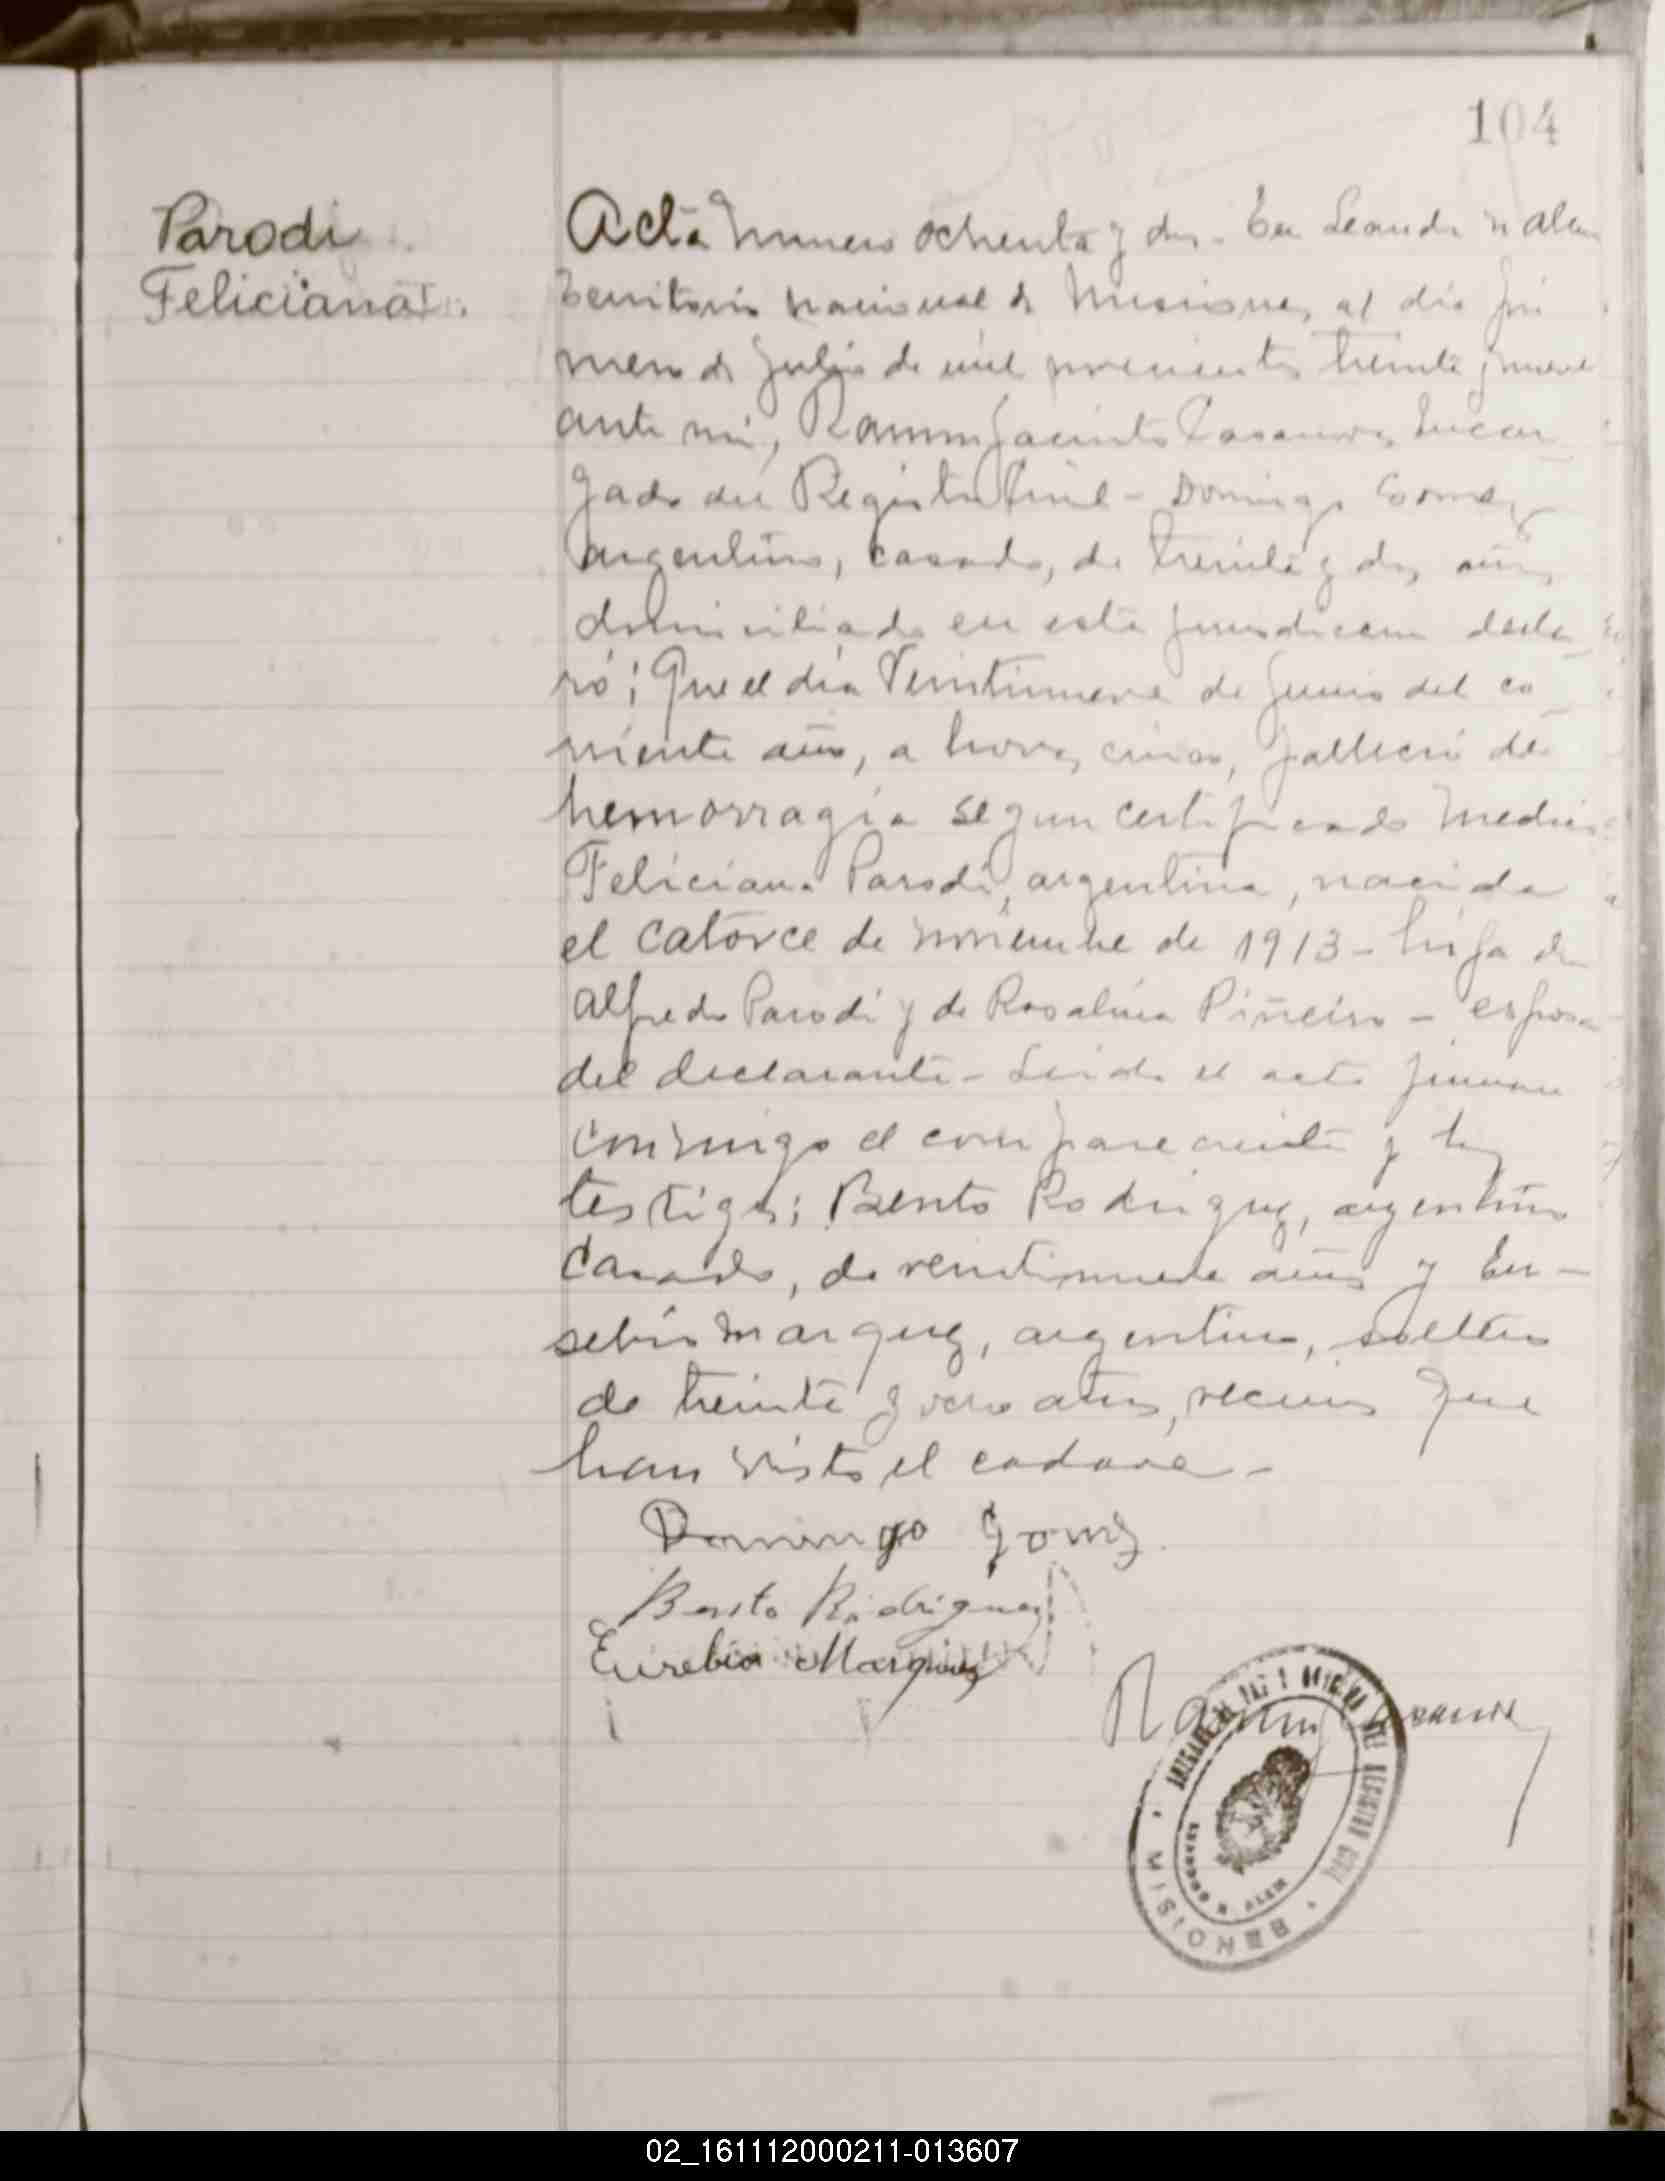 104
Parodi
Feliciana
Acta numero ochenta y dos - En Leandro N Alem
territorio nacional de Misiones, al dia pri
mero de Julio de mil novecientos treinta y nueve
ante mi, Ramon Jacinto Casanova, Encar
gado del Registro Civil - Domingo Gomez,
argentino, casado, de treinta y dos años
domiciliado en esta jurisdiccion decla
ró; Que el dia Veintinueve de Junio del co
rriente año, a horas cinco, falleció de
hemorragia segun certificado medico
Feliciana Parodi, argentina, nacida
el catorce de noviembre de 1913 - hija de
Alfredo Parodi y de Rosalina Piñeiro - esposa
del declarante - Leida el acta firman
conmigo el compareciente y los
testigos; Bento Rodriguez, argentino
Casado, de veintinueve años y Eu-
sebio Marquez, argentino, soltero
de treinta y ocho años, vecinos que
han visto el cadaver -
Domingo Gomez
Bento Rodriguez
Eusebio Marquez
Ramon Casanova
JUZGADO DE PAZ Y OFICINA DEL REGISTRO CIVIL
N. ALEM
MISIONES
02_161112000211-013607